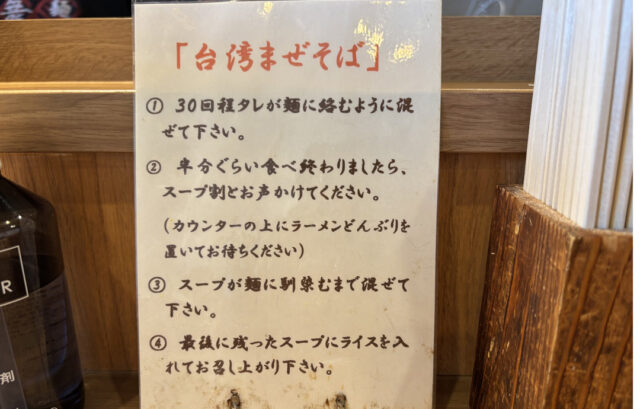 「台湾まぜそば」
① 30回程タレが麺に絡むように混
ぜて下さい。
② 半分ぐらい食べ終わりましたら、
スープ割とお声かけてください。
(カウンターの上にラーメンどんぶりを
置いてお待ちください)
③ スープが麺に馴染むまで混ぜて
下さい。
④ 最後に残ったスープにライスを入
れてお召し上がり下さい。
R
剤